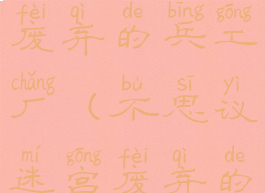 fèi qì de bīng gōng
废弃的兵工
chǎng bù sī yì
厂(不思议
mí gōng fèi qì de
迷宫废弃的